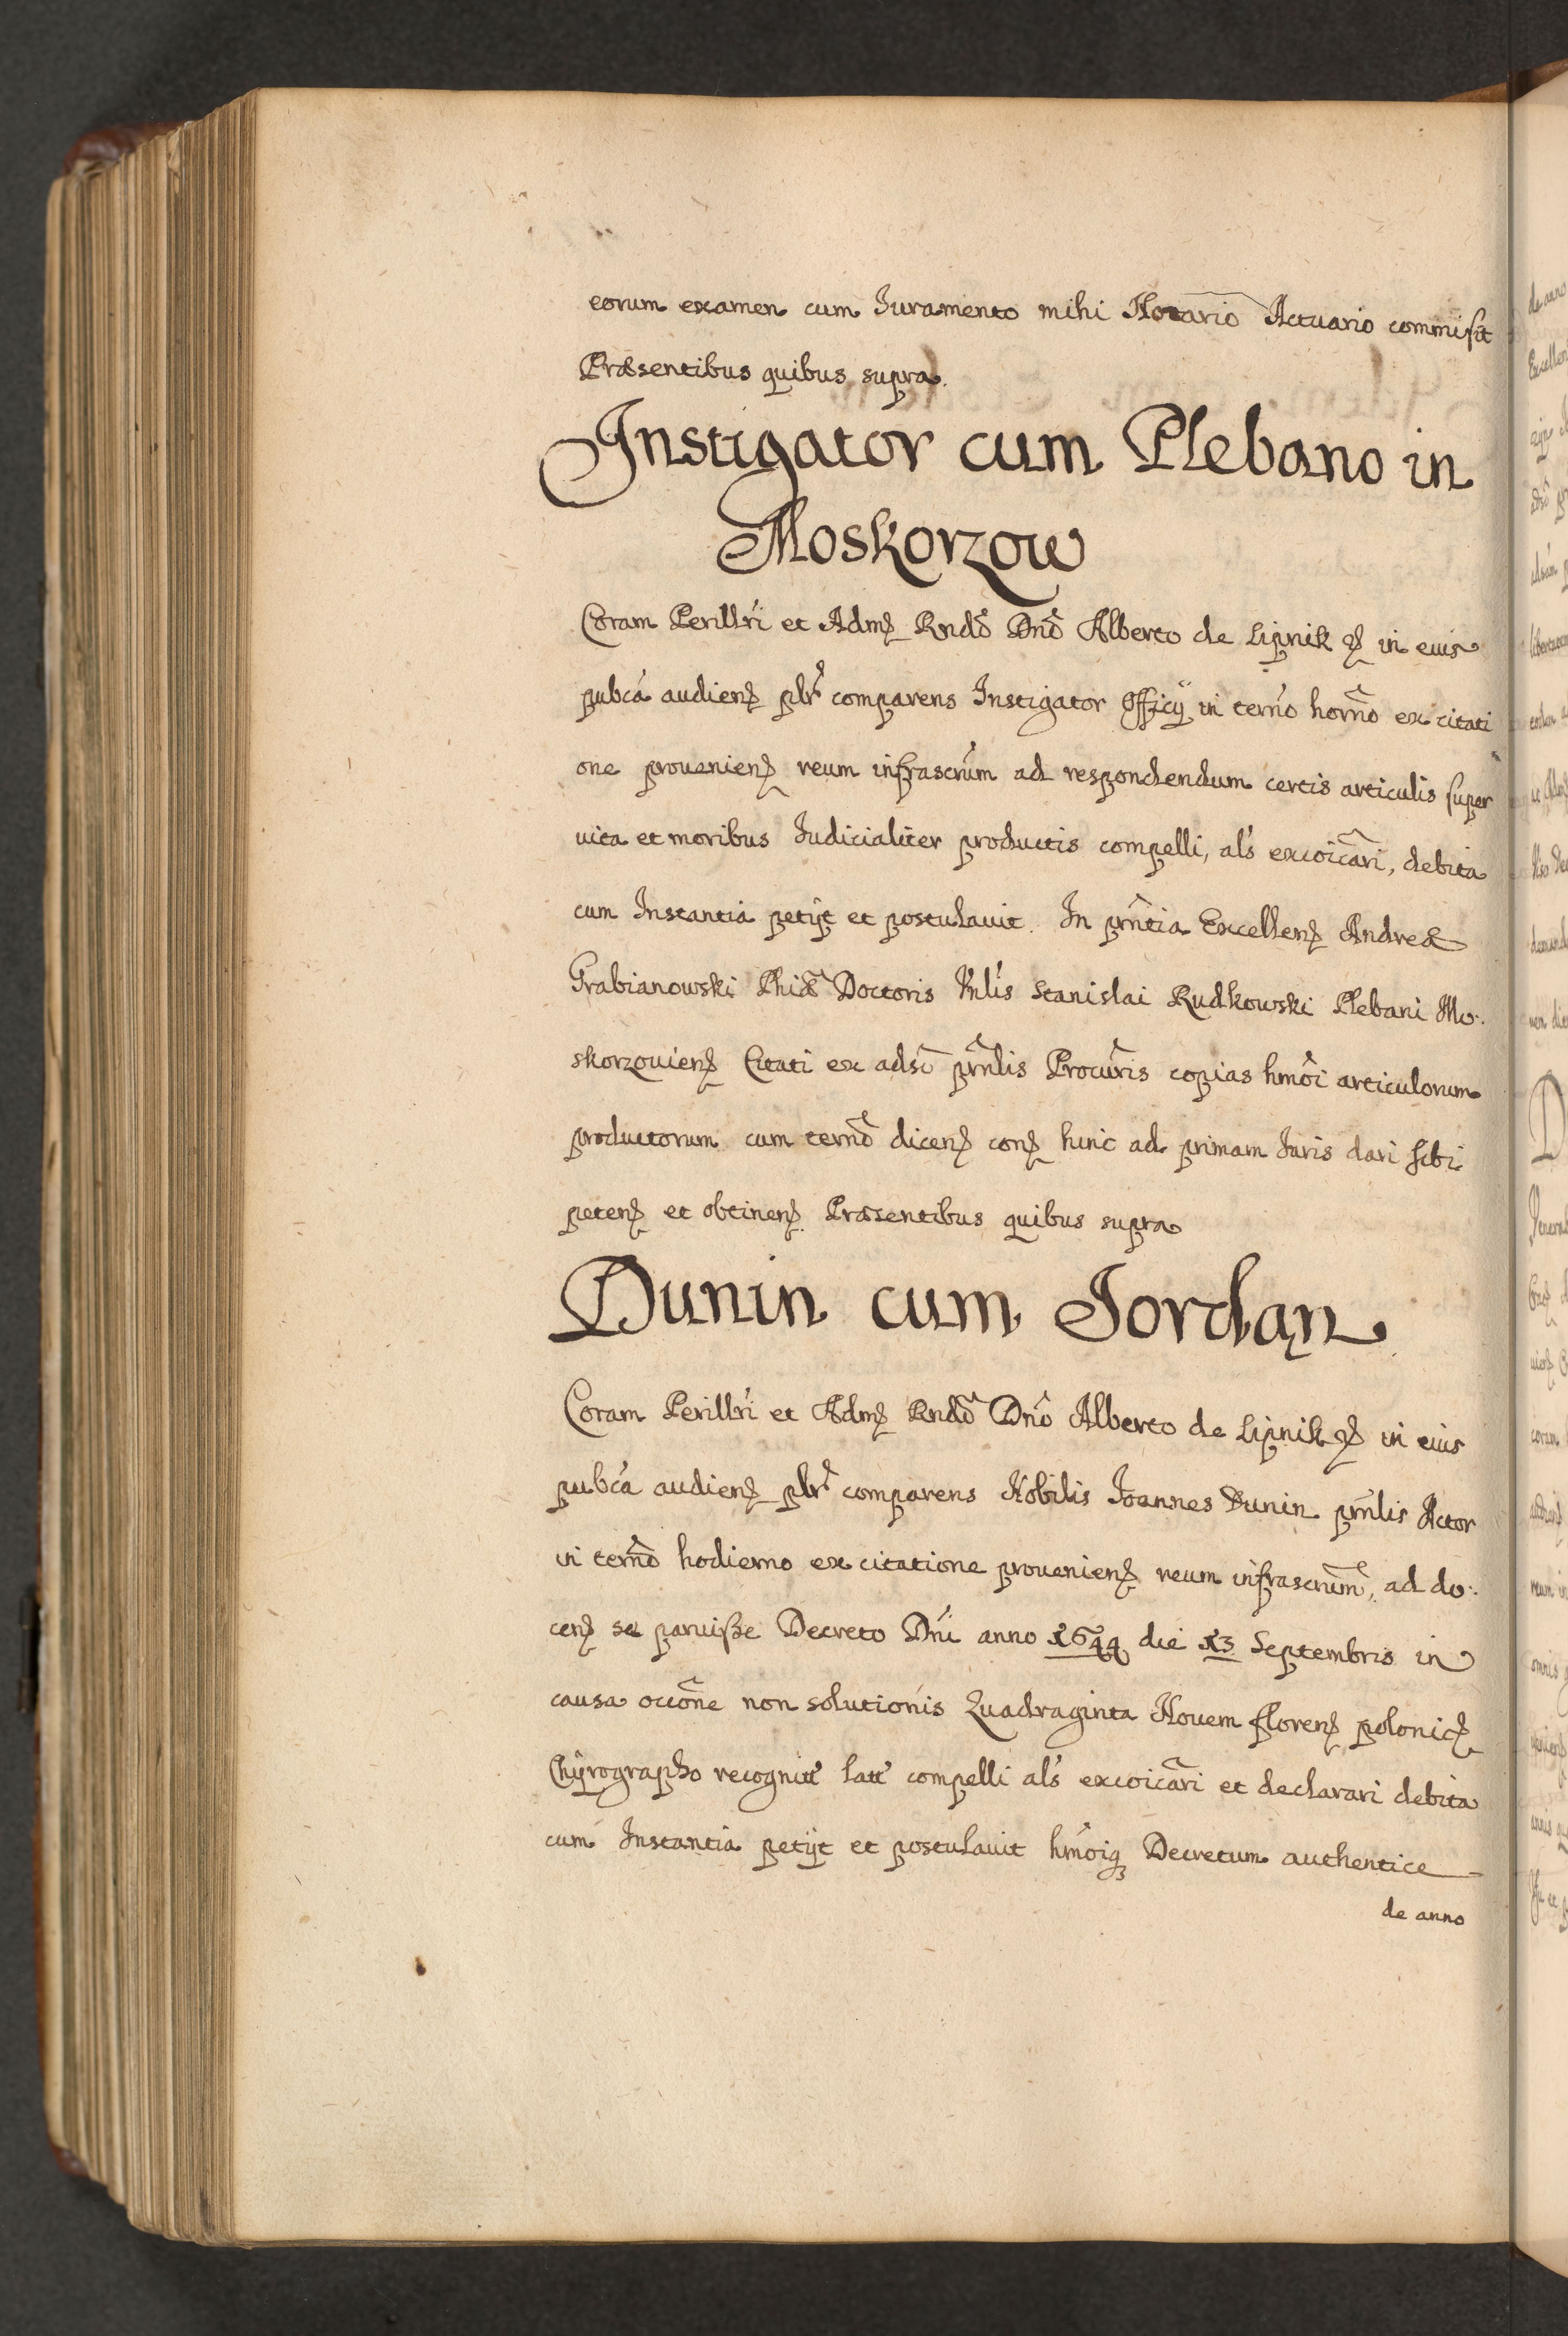 eorum examen cum Iuramento mihi Notario Actuario commisit
Præsentibus quibus supra.
Instigator cum Plebano in
Moskorzow
Coram Perillri et Admꝫ Rndo Dno Alberto de Lipnik ꝫ in eius
pubca audienꝫ plr comparens Instigator Officij in terno horno ex citati
one prouenienꝫ reum infrascrum ad respondendum certis articulis super
vita et moribus Iudicialiter productis compelli, als excoicari, debita
cum Instantia petijt et postulavit. In prntia Excellenꝫ Andreæ
Grabianowski Phiæ Doctoris Vnlis Stanislai Rudkowski Plebani Mo:
skorzovienꝫ Citati ex adso prnlis Procuris copias hmoi articulorum
productorum cum terno dicenꝫ conꝫ hinc ad primam Iuris dari sibi
petenꝫ et obtinenꝫ. Præsentibus quibus supra
Dunin cum Iordan.
Coram Perillri et Admꝫ Rndo Dno Alberto de Lipnik ꝫ in eius
pubca audienꝫ plr comparens Nobilis Ioannes Dunin prnlis Actor
in terno hodierno ex citatione prouenienꝫ reum infrascrum, ad do:
cenꝫ se paruiße Decreto Dni anno 1644 die 13 Septembris in
causa occone non solutionis Quadraginta Novem florenꝫ polonicꝫ
Chyrographo recognitt latt compelli als excoicari et declarari debita
cum Instantia petijt et postulavit hmoiqꝫ Decretum authentice
de anno